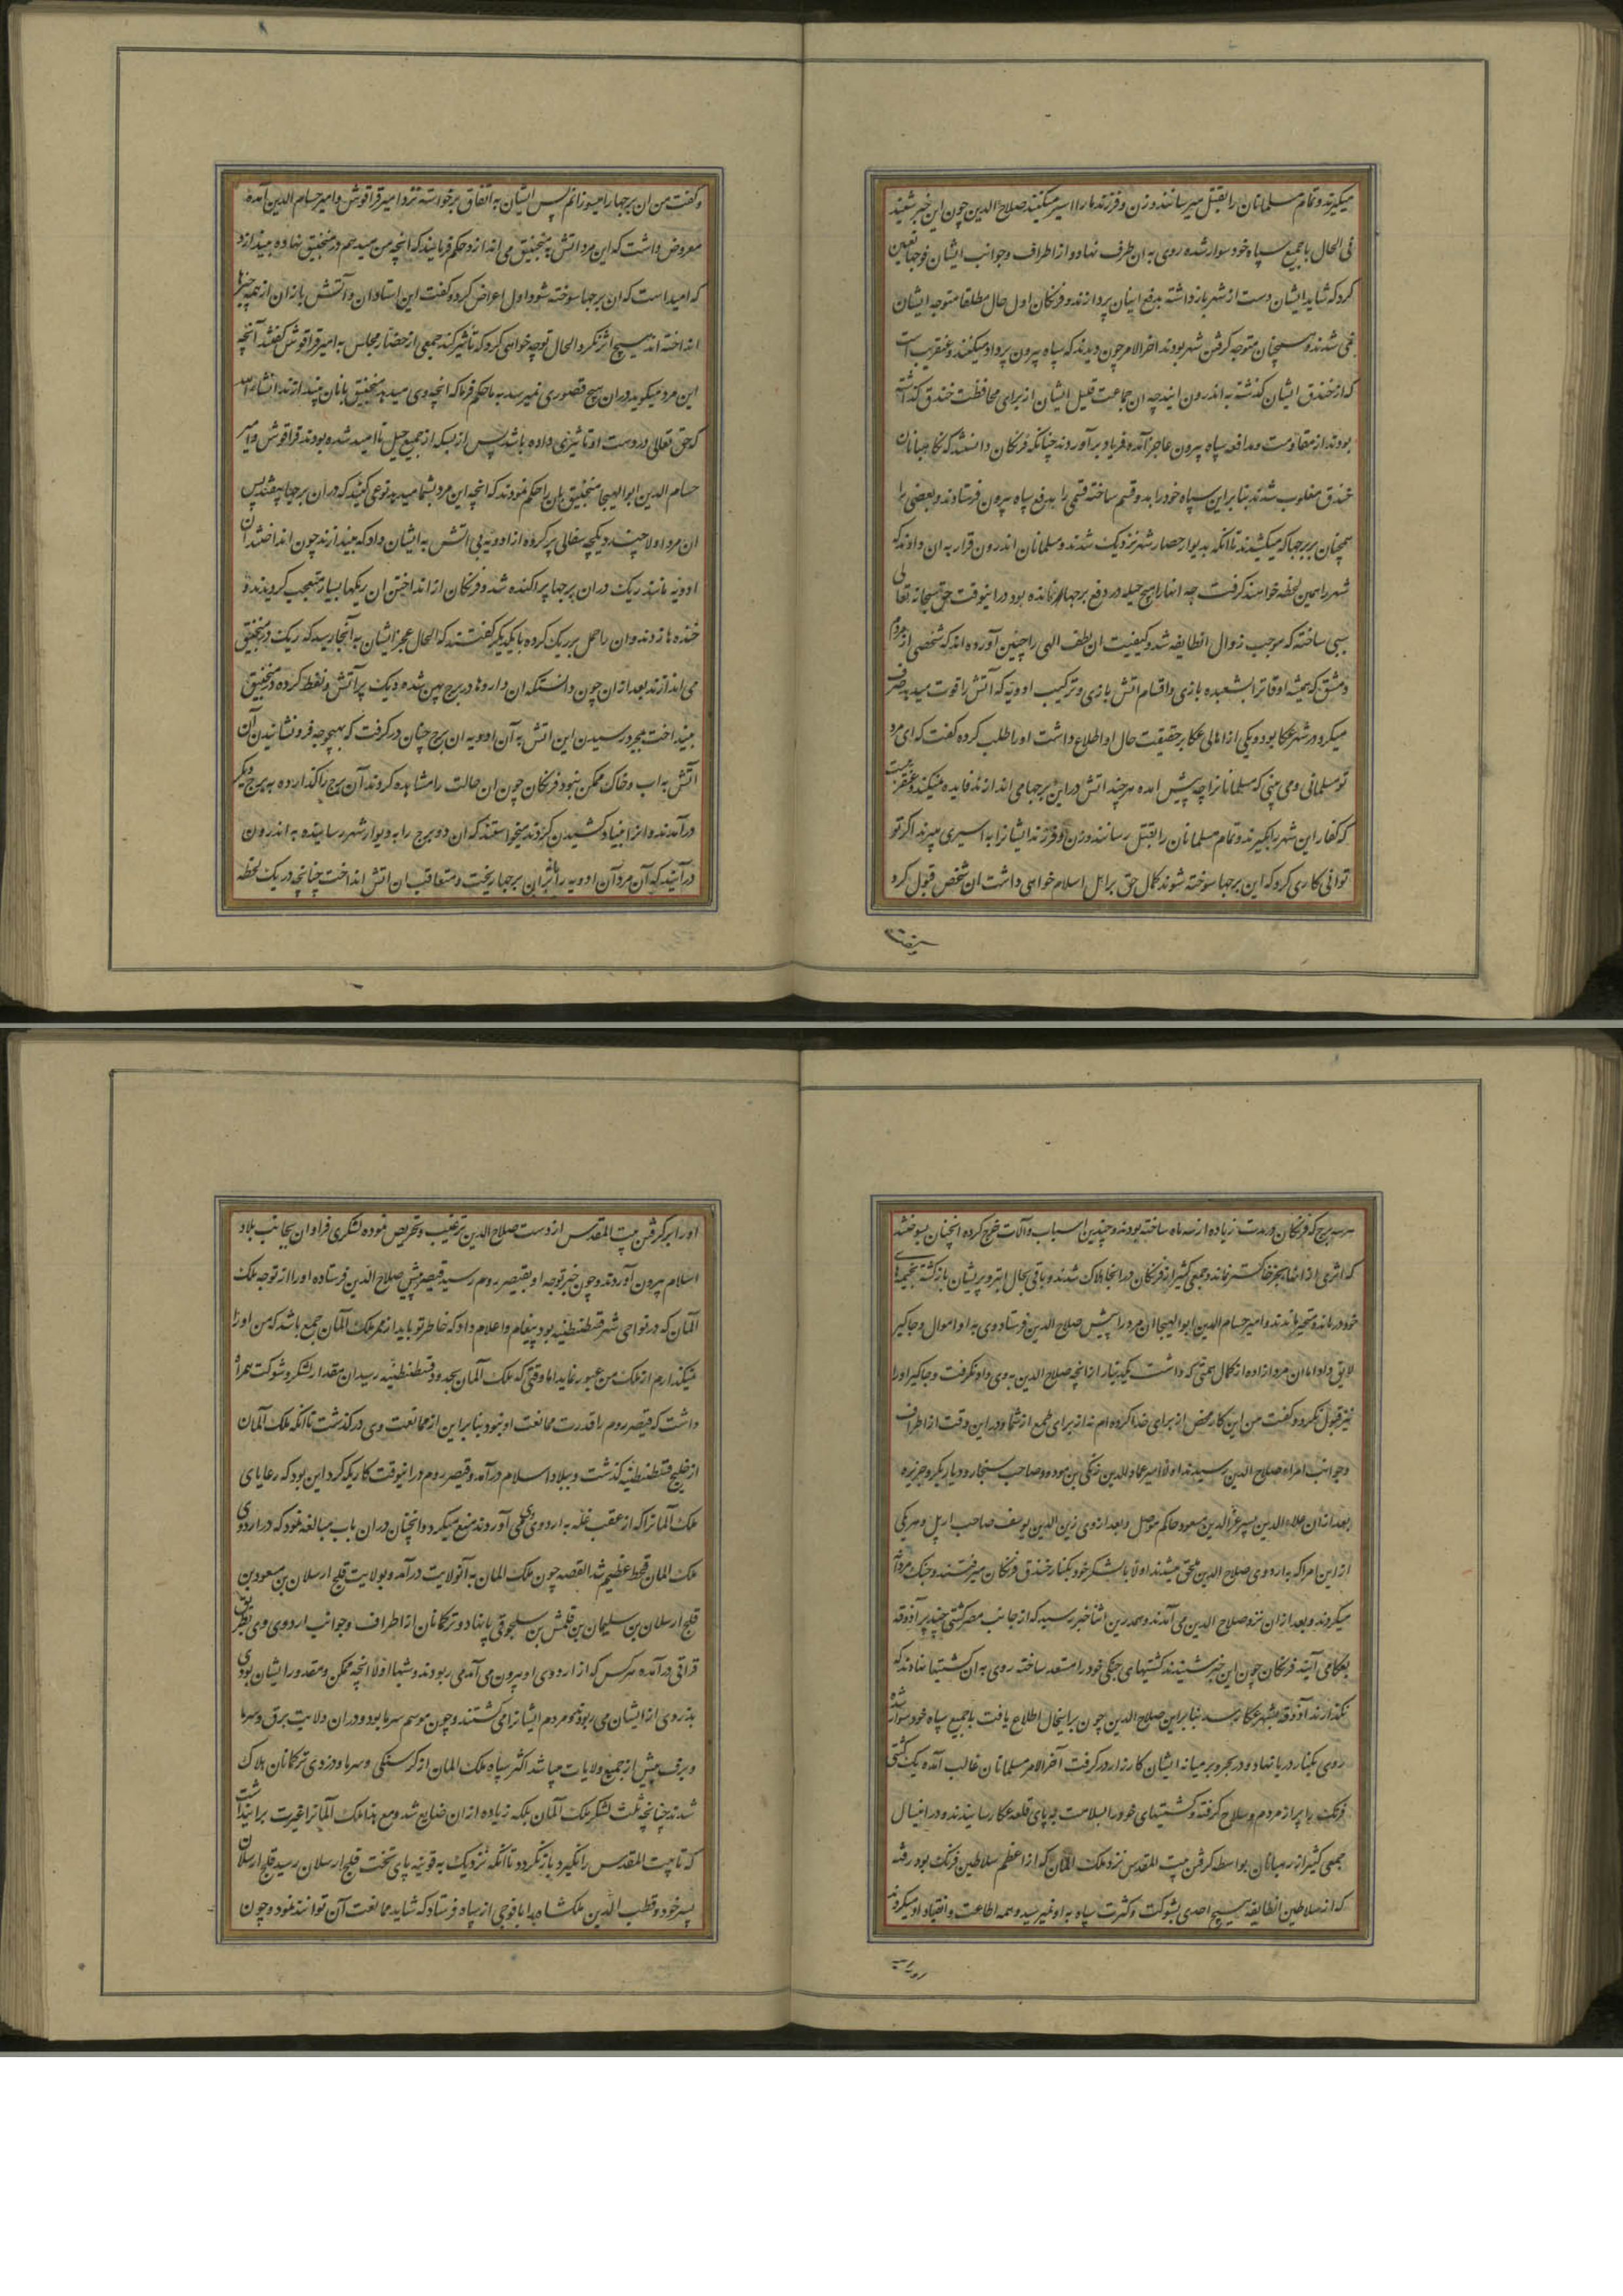 میکیرند و تمام مسلمانان را بقتل میرسانند و زن و فرزندها را اسیر میکنند صلاح الدین چون این خبر شنید
فی الحال با جمیع سپاه خود سوار شده روی به ان طرف نهاد و از اطراف و جوانب ایشان فوجها تعیین
کرد که شاید ایشان دست از شهر باز داشته بدفع اینان پردازند و فرنکان اول حال مطلقا متوجه ایشان
نمی شدند و همچنان متوجه کرفتن شهر بودند اخر الامر چون دیدند که سپاه بیرون پر داد میکنند و عنقریب است
که از خندق ایشان کذشته به اندرون ایند چه ان جماعت قلیل ایشان از برای محافظت خندق کذاشته
بودند از مقاومت و مدافعه سپاه بیرون عاجز آمده فریاد بر آوردند چنانکه فرنکان دانستند که نکاهبانان
خندق مغلوب شدند بنا بر این سپاه خود را بدو قسم ساخته قسمی را بدفع سپاه بیرون فرستادند و بعضی را
همچنان بر برجها که میکشیدند تا انکه بدیوار حصار شهر نزدیک شدند و مسلمانان اندرون قرار به ان دادند که
شهر را همین لحظه خواهند کرفت چه انها را هیچ حیله در دفع برجها نمانده بود در اینوقت حق سبحانه تعالی
سببی ساخته که موجب زوال انطایفه شد و کیفیت ان لطف الهی را چنین آورده اند که شخصی از مردم
دمشق که همیشه اوقاترا بشعبده بازی و اقسام اتش بازی و ترکیب ادویه که آتش را قوت میدهد صرف
میکرد در شهر عکا بود و یکی از اهالی عکا بر حقیقت حال او اطلاع داشت او را طلب کرده کفت که ای مرد
تو مسلمانی و می بینی که مسلمانانرا چه پیش امده هر چند اتش در این برجها می اندازند فایده نمیکند و عنقریبست
که کفار این شهر را بکیرند و تمام مسلمانان را بقتل رسانند و زن و فرزند ایشانرا به اسیری میبرند اکر تو
توانی کاری کرد که این برجها سوخته شوند کمال حق بر اهل اسلام خواهی داشت ان شخص قبول کرد
و کفت من ان برجها را میسوزانم پس ایشان به اتفاق برخواسته نزد امیر قراقوش و امیر حسام الدین آمده
معروض داشت که این مرد اتش به منجنیق می اندازد حکم فرمایند که انچه من میدهم در منجنیق نهاده بیندازند
که امید است که ان برجها سوخته شود اول اعراض کرده کفت این استادان و آتش بازان از همه چیزها
انداخته اند هیچ اثر نکرد الحال تو چه خواهی کرد که تأثیر کند جمعی از حضار مجلس به امیر قراقوش کفتند آنچه
این مرد میکوید در ان هیچ قصوری نمیرسد به ما حکم فرما که انچه وی میدهد منجنیق بانان بیندازند انشاء الله
که حق تعالی در دست او تاثیری داده باشد پس از بسکه از جمیع حیل نا امید شده بودند قراقوش و امیر
حسام الدین ابو الهیجا منجنیق بان را حکم نمودند که انچه این مرد بشما میدهد نوعی کنید که در ان برجها بیفتد پس
ان مرد اولا چند دیکچه سفالی پر کرده از ادویه بی اتش به ایشان داد که بیندازند چون انداختند ان
ادویه مانند ریک در ان برجها پراکنده شد و فرنکان از انداختن ان ریکها بسیار متعجب کردیدند و
خنده ها زدند و ان را حمل بر ریک کرده با یکدیکر کفتند که الحال عجز ایشان به آنجا رسید که ریک در منجنیق
می اندازند بعد از ان چون دانستند که ان داروها در برج پهن شده دیک پر آتش و نفط کرده در منجنیق
بینداخت بمجرد رسیدن این اتش به آن ادویه ان برج چنان در کرفت که بهیچوجه فرو نشانیدن آن
آتش به اب و خاک ممکن نبود فرنکان چون ان حالت را مشاهده کردند آن برج را کذارده به برج دیکر
در آمدند و انرا بنیاد کشیدن کردند میخواستند که ان دو برج را به دیوار شهر رسانیده به اندرون
در آیند که آن مرد آن ادویه را باز بران برجها ریخت و متعاقب ان اتش انداخت چنانچه در یک لحظه
هر سه برج که فرنکان در مدت زیاده از سه ماه ساخته بودند و چندین اسباب و آلات خرج کرده انچنان بسوختند
که اثری از انها بجز خاکستر نماند و جمعی کثیر از فرنکان در انجا هلاک شدند و باقی بحال ابتر و پریشان باز کشته بخیمه های
خود درمانده و متحیر ماندند و امیر حسام الدین ابو الهیجا ان مرد را پیش صلاح الدین فرستاد وی به او اموال و جاکیر
لایق داد اما ان مرد ازاده از کمال همتی که داشت یکدینار از انچه صلاح الدین به وی داد نکرفت و جاکیر او را
نیز قبول نکرد و کفت من این کار محض از برای خدا کرده ام نه از برای طمع از شما و در این وقت از اطراف
و جوانب امراء صلاح الدین رسیدند اولا امیر عماد الدین زنکی بن مودود صاحب سنجار و دیار بکر و جزیره
بعد از ان علاء الدین پسر عز الدین مسعود حاکم موصل و بعد از وی زین الدین یوسف صاحب اربل و هر یکی
از این امرا که به اردوی صلاح الدین ملحق میشدند اولا با لشکر خود بکنار خندق فرنکان میرفتند و جنک مردانه
میکردند و بعد از ان نزد صلاح الدین می آمدند و همدرین اثنا خبر رسید که از جانب مصر کشتی چند پر آذوقه
بعکا می آیند فرنکان چون این خبر شنیدند کشتیهای جنکی خود را مستعد ساخته روی به ان کشتیها نهادند که
نکذارند آذوقه بشهر عکا رسد بنا بر این صلاح الدین چون بر اینحال اطلاع یافت با جمیع سپاه خود سوار شده
روی بکنار دریا نهاد و در بحر و بر میانه ایشان کارزار در کرفت آخر الامر مسلمانان غالب آمده یک کشتی
فرنک را پر از مردم و سلاح کرفته و کشتیهای خود را بسلامت به پای قلعه عکا رسانیدند و در اینسال
جمعی کثیر از رهبانان بواسطه کرفتن بیت المقدس نزد ملک المان که از اعظم سلاطین فرنک بود رفته
که از سلاطین انطایفه هیچ احدی بشوکت و کثرت سپاه به او نمیرسید و همه اطاعت و انقیاد او میکردند
او را بر کرفتن بیت المقدس از دست صلاح الدین ترغیب و تحریص نموده لشکری فراوان بجانب بلاد
اسلام بیرون آوردند و چون خبر توجه او بقیصر روم رسید قیصر پیش صلاح الدین فرستاده او را از توجه ملک
آلمان که در نواحی شهر قسطنطنیه بود پیغام و اعلام داد که خاطر تو باید از ممر ملک آلمان جمع باشد که من او را
نمیکذارم از ملک من عبور نماید اما وقتی که ملک آلمان بحدود قسطنطنیه رسید ان مقدار لشکر و شوکت همراه
داشت که قیصر روم را قدرت ممانعت او نبود بنا بر این از ممانعت وی در کذشت تا انکه ملک آلمان
از خلیج قسطنطنیه کذشت و ببلاد اسلام در آمد و قیصر روم در انیوقت کاریکه کرد این بود که رعایای
ملک آلمانرا که از عقب غله به اردوی وی می آوردند منع میکرد و انچنان در ان باب مبالغه نمود که در اردوی
ملک المان قحط عظیم شد القصه چون ملک المان به آنولایت در آمد و بولایت قلج ارسلان بن مسعود بن
قلج ارسلان بن سلیمان بن قلمش بن سلجوقی پا نهاد و ترکمانان از اطراف و جوانب اردوی وی بطریق
قزاقی در آمده هر کس که از اردوی او بیرون می آمد می ربودند و شبها اولا انچه ممکن و مقدور ایشان بودی
بدزدی از ایشان می ربودند و مردم ایشانرا می کشتند و چون موسم سرما بود و در ان ولایت برق و سرما
و برف بیش از جمیع ولایات میباشد اکثر سپاه ملک المان از کرسنکی و سرما و دزدی ترکمانان هلاک
شدند چنانچه ثلث لشکر ملک آلمان بلکه زیاده از ان ضایع شد و مع هذا ملک آلمانرا غیرت بر این داشت
که تا بیت المقدس را نکیرد باز نکردد تا انکه نزدیک به قونیه پای تخت قلج ارسلان رسید قلج ارسلان
پسر خود قطب الدین ملکشاه را با فوجی از سپاه فرستاد که شاید ممانعت آن توانند نمود و چون